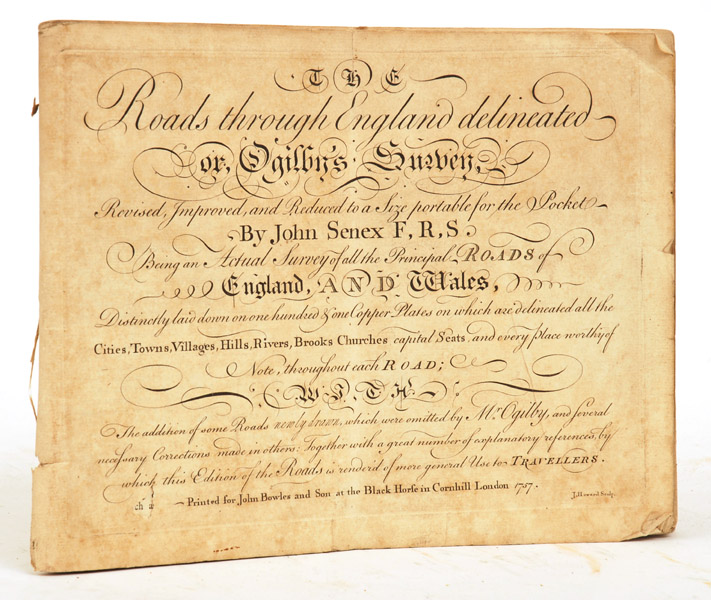 THE
Roads through England delineated
or, Ogilby's Survey,
Revised, Improved, and Reduced to a Size portable for the Pocket
By John Senex F,R,S.
Being an Actual Survey of all the Principal ROADS of
England, AND Wales,
Distinctly laid down on one hundred & one Copper Plates on which are delineated all the
Cities, Towns, Villages, Hills, Rivers, Brooks Churches capital Seats, and every place worthy of
Note, throughout each ROAD;
WITH
The addition of some Roads newly drawn, which were omitted by Mr. Ogilby, and several
necessary Corrections made in others: Together with a great number of explanatory references, by
which this Edition of the Roads is render'd of more general Use to TRAVELLERS.
Printed for John Bowles and Son at the Black Horse in Cornhill London 1757.